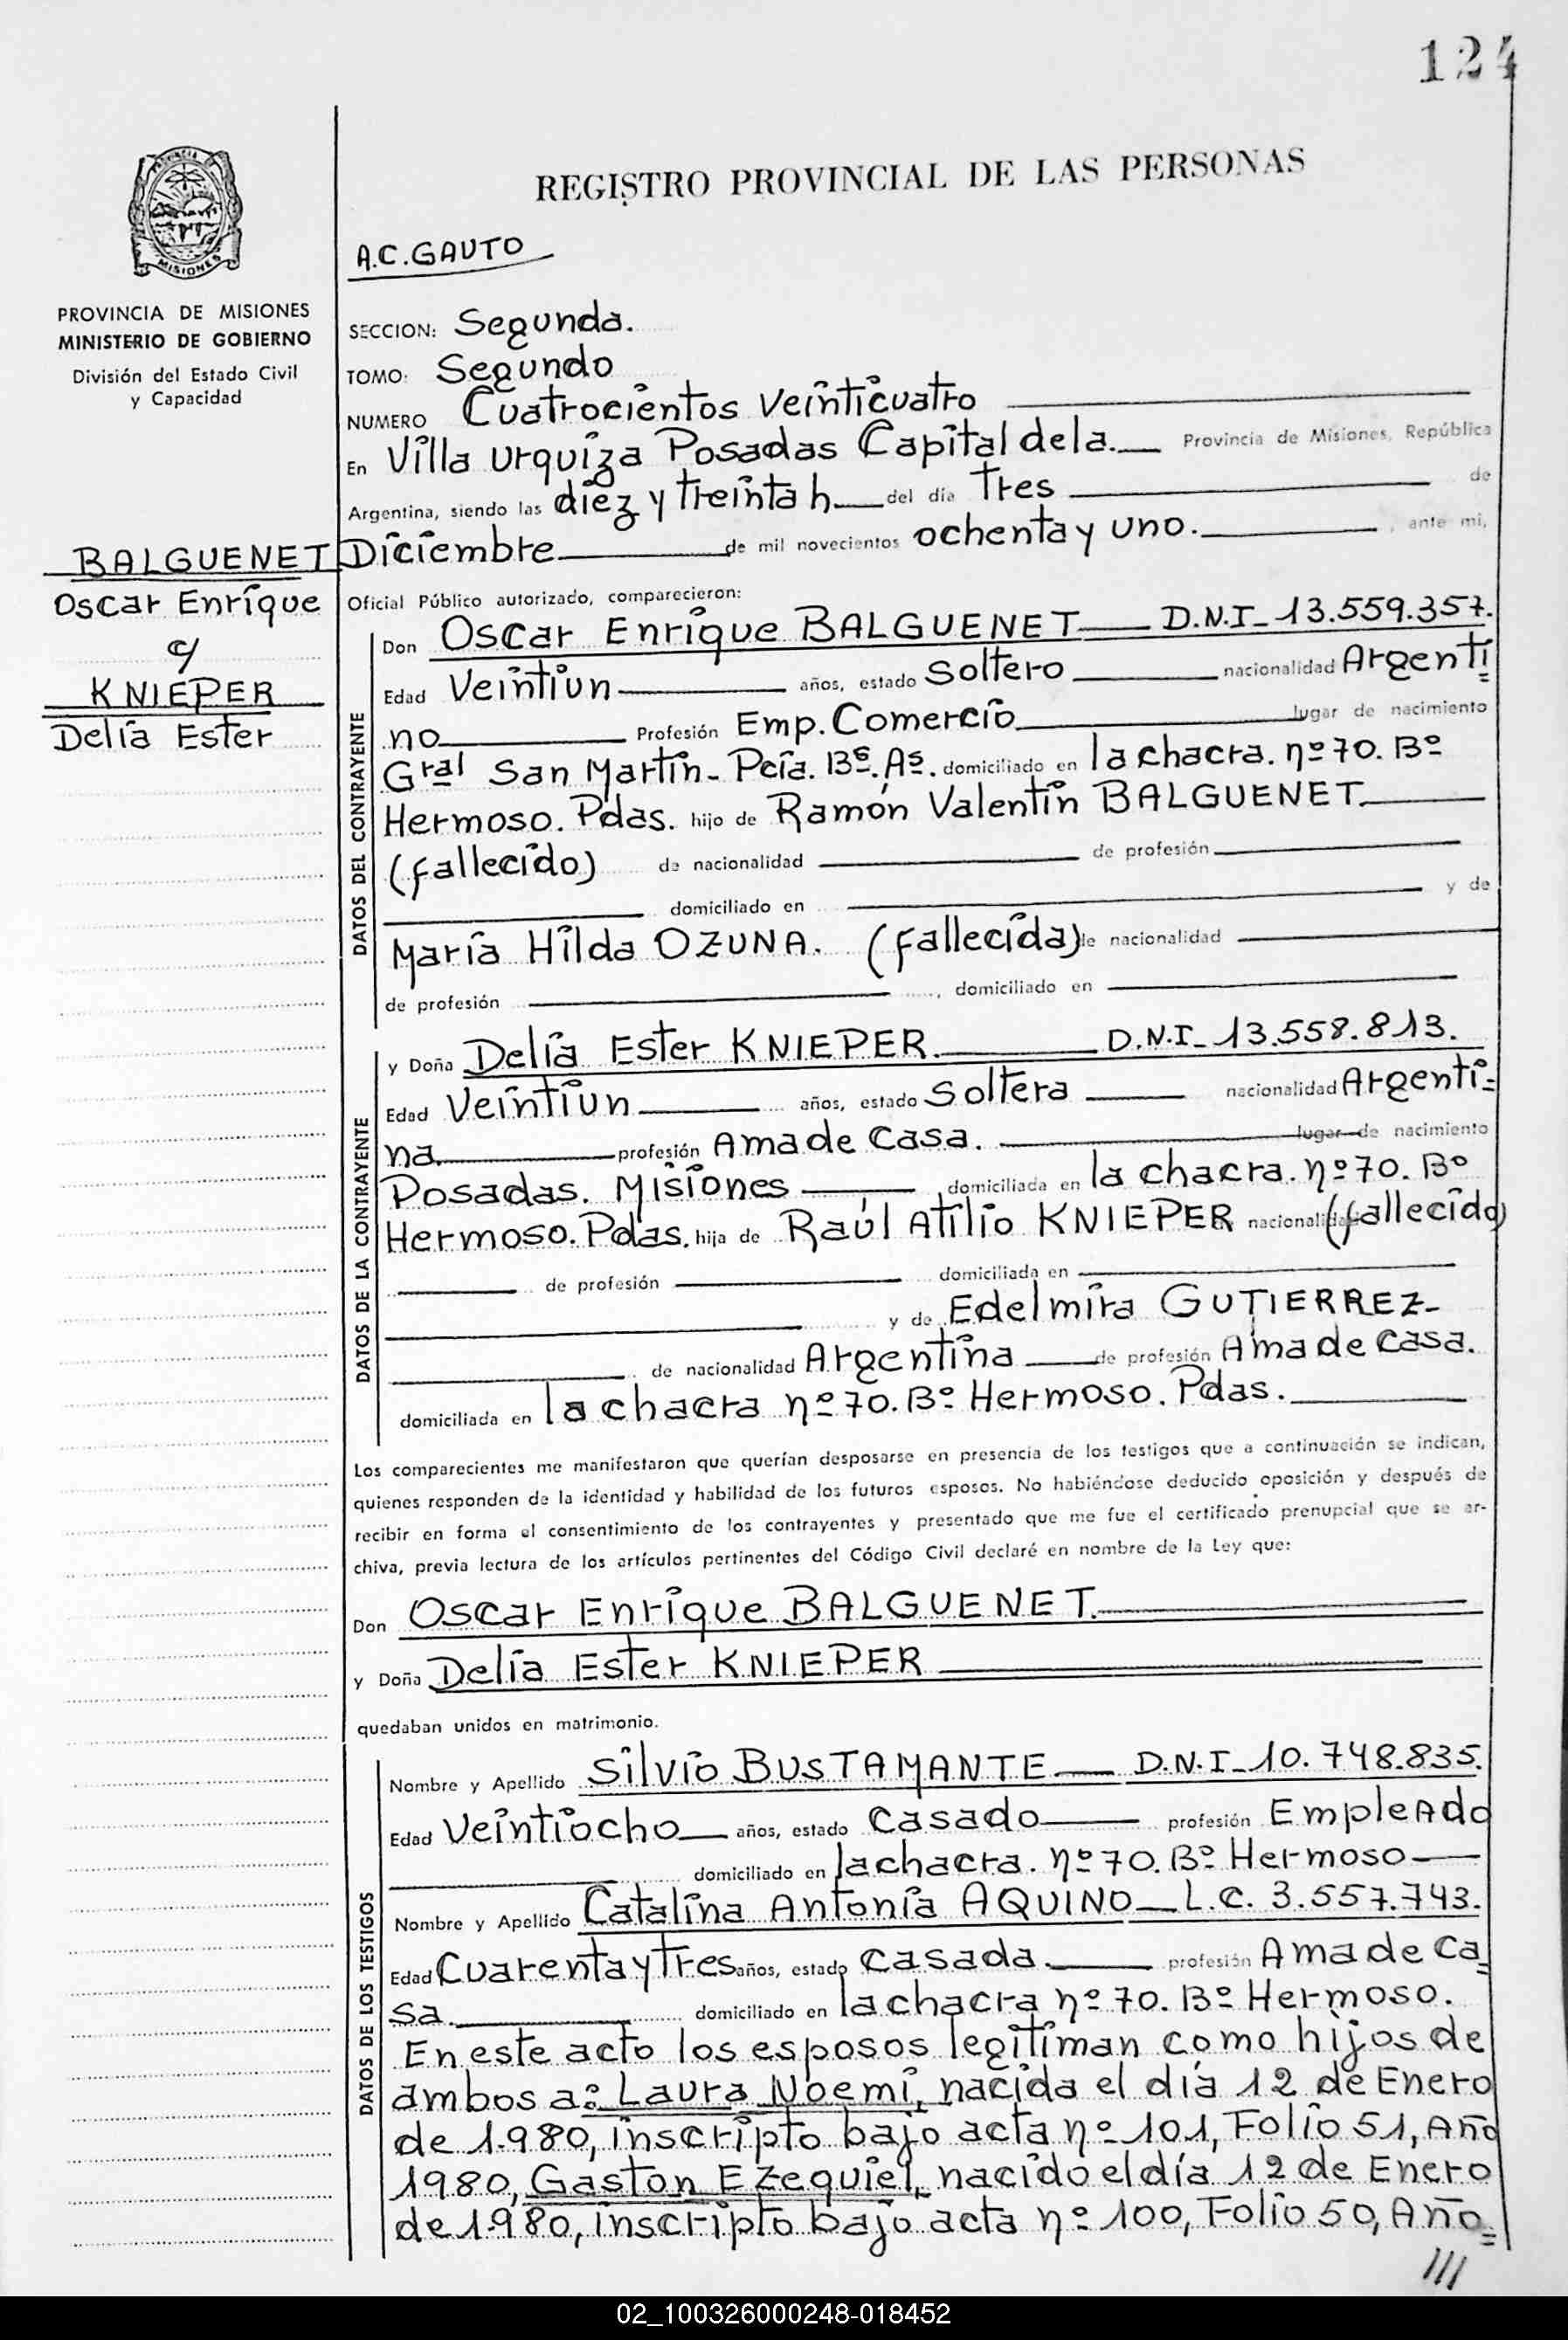 124
PROVINCIA
MISIONES
PROVINCIA DE MISIONES
MINISTERIO DE GOBIERNO
División del Estado Civil
y Capacidad
BALGUENET
Oscar Enrique
c/
KNIEPER
Delia Ester
REGISTRO PROVINCIAL DE LAS PERSONAS
A.C. GAUTO
SECCION: Segunda.
TOMO: Segundo
NUMERO Cuatrocientos Veinticuatro
En Villa Urquiza Posadas Capital de la. Provincia de Misiones, República
Argentina, siendo las diez y treinta h del día Tres de
Diciembre de mil novecientos ochenta y uno. , ante mi,
Oficial Público autorizado, comparecieron:
DATOS DEL CONTRAYENTE
Don Oscar Enrique BALGUENET D.N.I_ 13.559.357.
Edad Veintiun años, estado Soltero nacionalidad Argenti=
no Profesión Emp. Comercio lugar de nacimiento
Gral San Martin- Pcia. Bs. As. domiciliado en la chacra. nº 70. Bº
Hermoso. Pdas. hijo de Ramón Valentin BALGUENET.
(fallecido) de nacionalidad de profesión
domiciliado en y de
María Hilda OZUNA. (fallecida) de nacionalidad
de profesión , domiciliado en
DATOS DE LA CONTRAYENTE
y Doña Delia Ester KNIEPER. D.N.I_ 13.558.813.
Edad Veintiun años, estado Soltera nacionalidad Argenti=
na. profesión Ama de Casa. lugar de nacimiento
Posadas. Misiones domiciliada en la chacra. nº 70. Bº
Hermoso. Pdas. hija de Raúl Atilio KNIEPER nacionalidad (fallecido)
de profesión domiciliada en
y de Edelmira GUTIERREZ-
de nacionalidad Argentina de profesión Ama de Casa.
domiciliada en la chacra nº 70. Bº Hermoso. Pdas.
Los comparecientes me manifestaron que querían desposarse en presencia de los testigos que a continuación se indican,
quienes responden de la identidad y habilidad de los futuros esposos. No habiéndose deducido oposición y después de
recibir en forma el consentimiento de los contrayentes y presentado que me fue el certificado prenupcial que se ar-
chiva, previa lectura de los artículos pertinentes del Código Civil declaré en nombre de la Ley que:
Don Oscar Enrique BALGUENET.
y Doña Delia Ester KNIEPER
quedaban unidos en matrimonio.
DATOS DE LOS TESTIGOS
Nombre y Apellido Silvio BUSTAMANTE D.N.I_ 10.748.835.
Edad Veintiocho años, estado Casado profesión Empleado
domiciliado en la chacra. nº 70. Bº Hermoso
Nombre y Apellido Catalina Antonia AQUINO L.C. 3.557.743.
Edad Cuarenta y Tres años, estado Casada. profesión Ama de Ca=
sa. domiciliado en la chacra nº 70. Bº Hermoso.
En este acto los esposos legitiman como hijos de
ambos a: Laura Noemi, nacida el día 12 de Enero
de 1.980, inscripto bajo acta nº 101, Folio 51, Año
1980, Gaston Ezequiel, nacido el día 12 de Enero
de 1.980, inscripto bajo acta nº 100, Folio 50, Año=
///
02_100326000248-018452